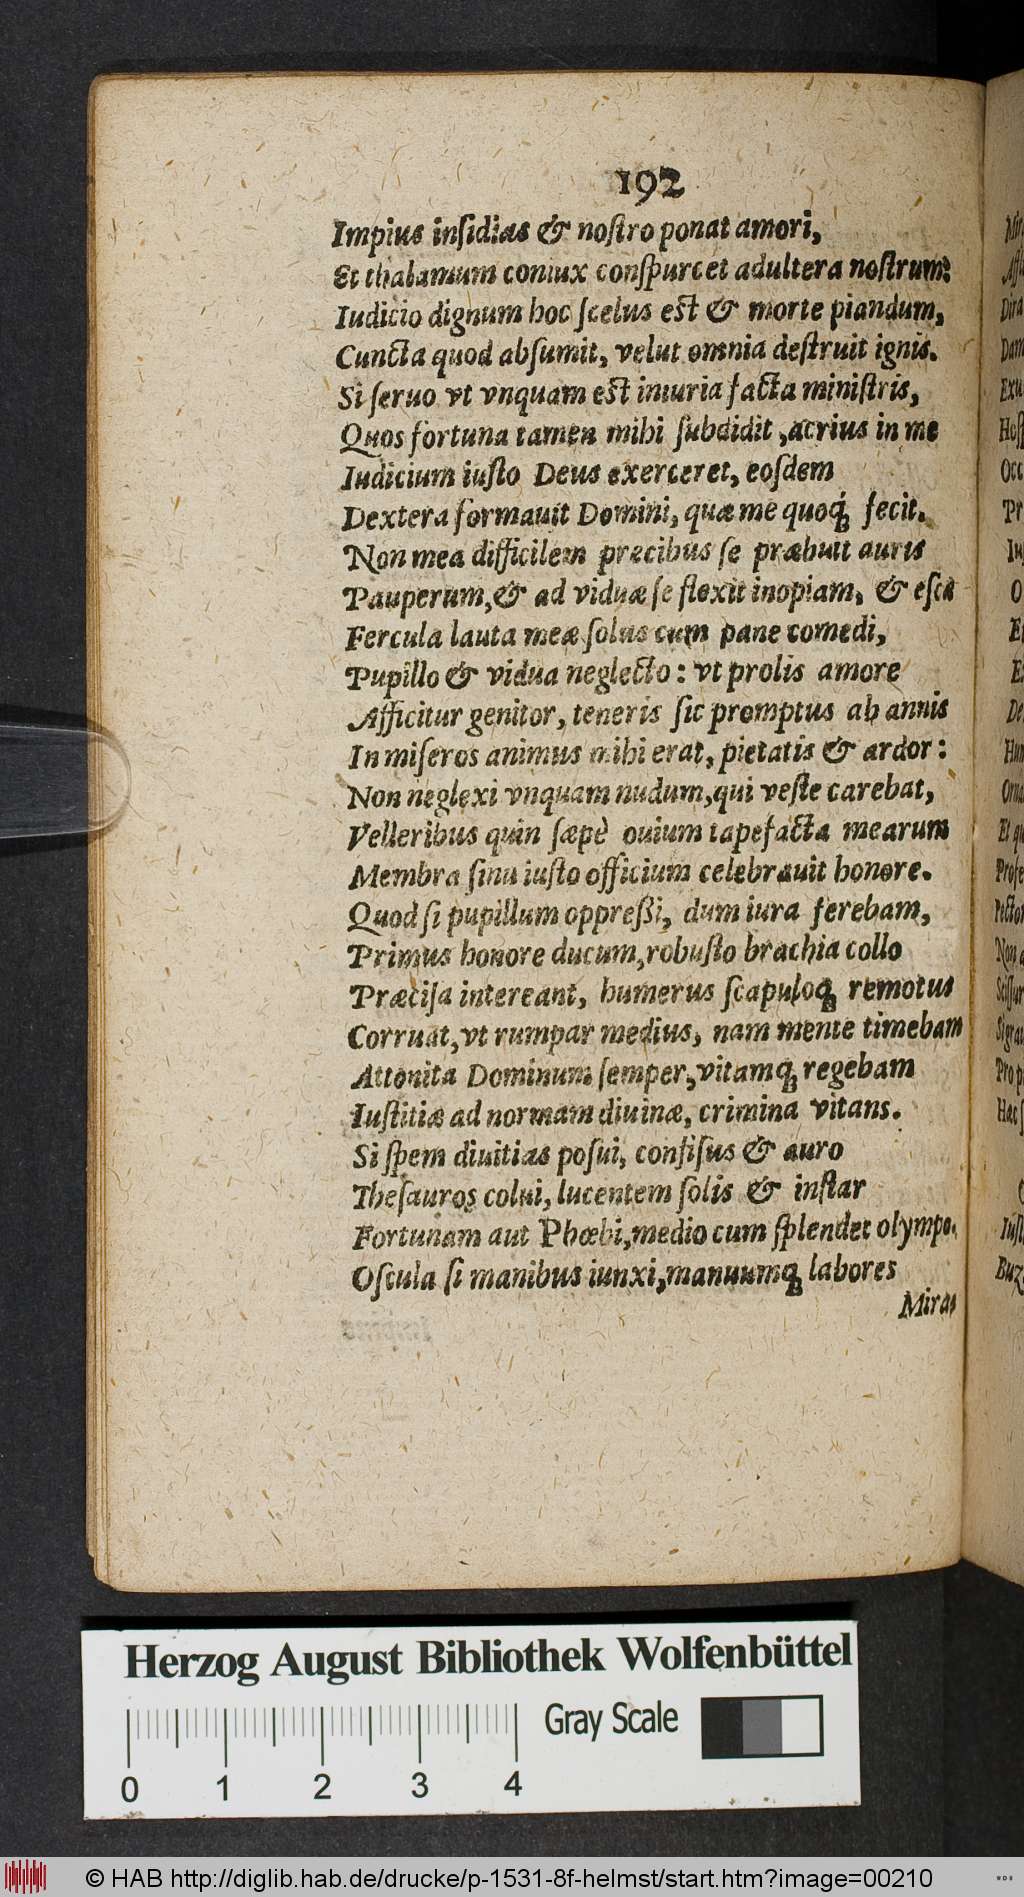 192
Impius inſidias & noſtro ponat amori,
Et thalamum coniux conſpurcet adultera noſtrum:
Iudicio dignum hoc ſcelus eſt & morte piandum,
Cuncta quod abſumit, velut omnia deſtruit ignis.
Si ſeruo vt vnquam eſt iniuria facta miniſtris,
Quos fortuna tamen mihi ſubdidit, acrius in me
Iudicium iuſto Deus exerceret, eoſdem
Dextera formauit Domini, quæ me quoq́ꝫ fecit.
Non mea difficilem precibus ſe præbuit auris
Pauperum, & ad viduæ ſe flexit inopiam, & eſca
Fercula lauta meæ ſolus cum pane comedi,
Pupillo & vidua neglecto: vt prolis amore
Afficitur genitor, teneris ſic promptus ab annis
In miſeros animus mihi erat, pietatis & ardor:
Non neglexi vnquam nudum, qui veſte carebat,
Velleribus quin ſæpè ouium tapefacta mearum
Membra ſinu iuſto officium celebrauit honore.
Quod ſi pupillum oppreßi, dum iura ferebam,
Primus honore ducum, robuſto brachia collo
Præciſa intereant, humerus ſcapuloqꝫ remotus
Corruat, vt rumpar medius, nam mente timebam
Attonita Dominum ſemper, vitamqꝫ regebam
Iuſtitiæ ad normam diuinæ, crimina vitans.
Si ſpem diuitias poſui, confiſus & auro
Theſauros colui, lucentem ſolis & inſtar
Fortunam aut Phœbi, medio cum ſplendet olympo.
Oſcula ſi manibus iunxi, manuumqꝫ labores
Miras
Herzog August Bibliothek Wolfenbüttel
Gray Scale
0 1 2 3 4
© HAB http://diglib.hab.de/drucke/p-1531-8f-helmst/start.htm?image=00210